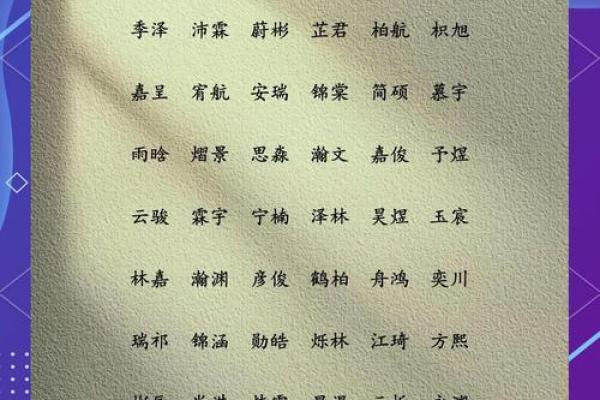 季泽 沛霖 蔚彬 芷君 柏航 枳旭
嘉呈 宥航 安瑞 锦棠 简硕 慕宇
雨晗 熠景 思淼 瀚文 嘉俊 予煜
云骏 霖宇 宁楠 泽林 昊煜 玉宸
林嘉 瀚渊 彦俊 鹤柏 舟鸿 奕川
瑞祁 锦涵 勋皓 烁林 江琦 方熙